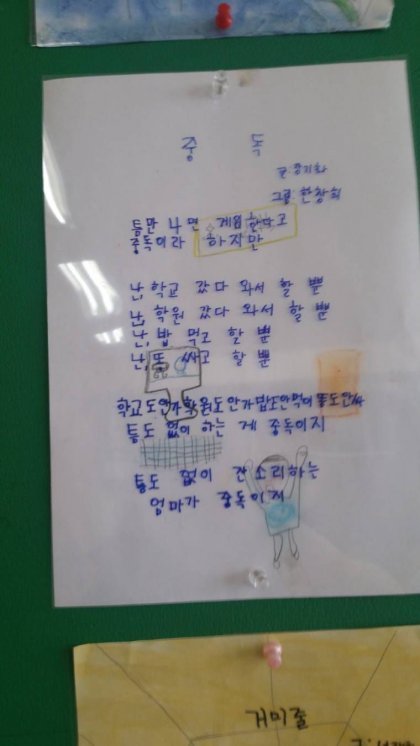 중독
글 장기화
그림 한창희
틈만 나면 게임한다고
중독이라 하지만
난, 학교 갔다 와서 할 뿐
난, 학원 갔다 와서 할 뿐
난, 밥 먹고 할 뿐
난, 똥 싸고 할 뿐
학교도안가학원도안가밥도안먹어똥도안싸
틈도 없이 하는 게 중독이지
틈도 없이 잔소리하는
엄마가 중독이지
거미줄